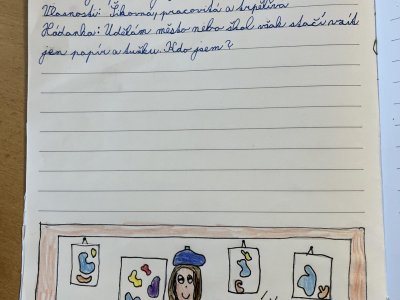 Vlasnosti: Šikovná, pracovitá a trpělivá
Hádanka: Udělám město nebo škol však stačí vzít
jen papír a tužku. Kdo jsem?